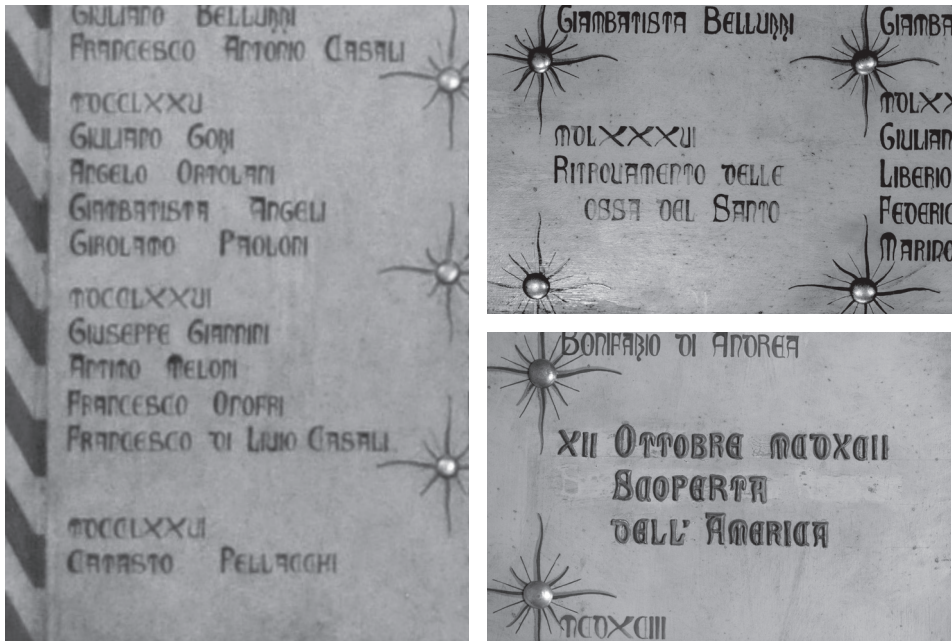 GIULIANO BELLUZZI
FRANCESCO ANTONIO CASALI
MDCCLXXV
GIULIANO GOZI
ANGELO ORTOLANI
GIAMBATISTA ANGELI
GIROLAMO PAOLONI
MDCCLXXVI
GIUSEPPE GIANNINI
ANTIMO MELONI
FRANCESCO ONOFRI
FRANCESCO DI LIVIO CASALI
MDCCLXXVI
CATASTO PELLACCHI
GIAMBATISTA BELLUZZI
MDLXXXVI
RITROVAMENTO DELLE
OSSA DEL SANTO
GIAMBA
MDLXX
GIULIAN
LIBERIO
FEDERIC
MARINO
BONIFAZIO DI ANDREA
XII OTTOBRE MCDXCII
SCOPERTA
DELL' AMERICA
MCDXCIII